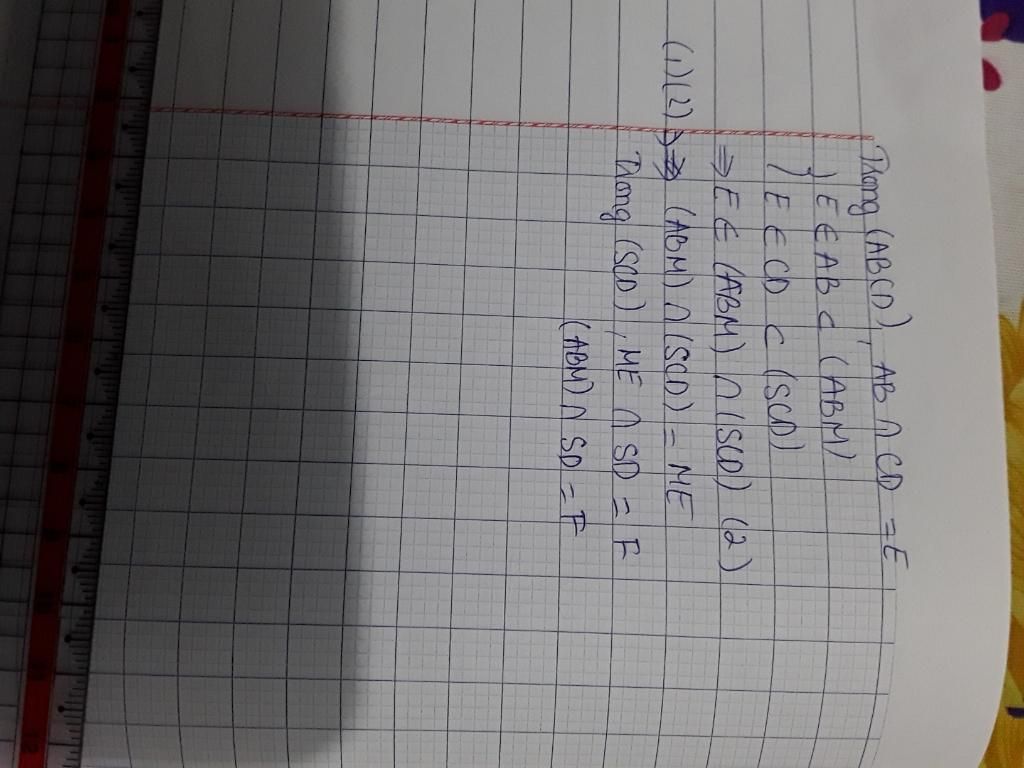 Trong (ABCD), AB ∩ CD = E
} E ∈ AB ⊂ (ABM)
} E ∈ CD ⊂ (SCD)
⇒ E ∈ (ABM) ∩ (SCD) (2)
(1)(2) ⇒ (ABM) ∩ (SCD) = ME
Trong (SCD), ME ∩ SD = F
(ABM) ∩ SD = F